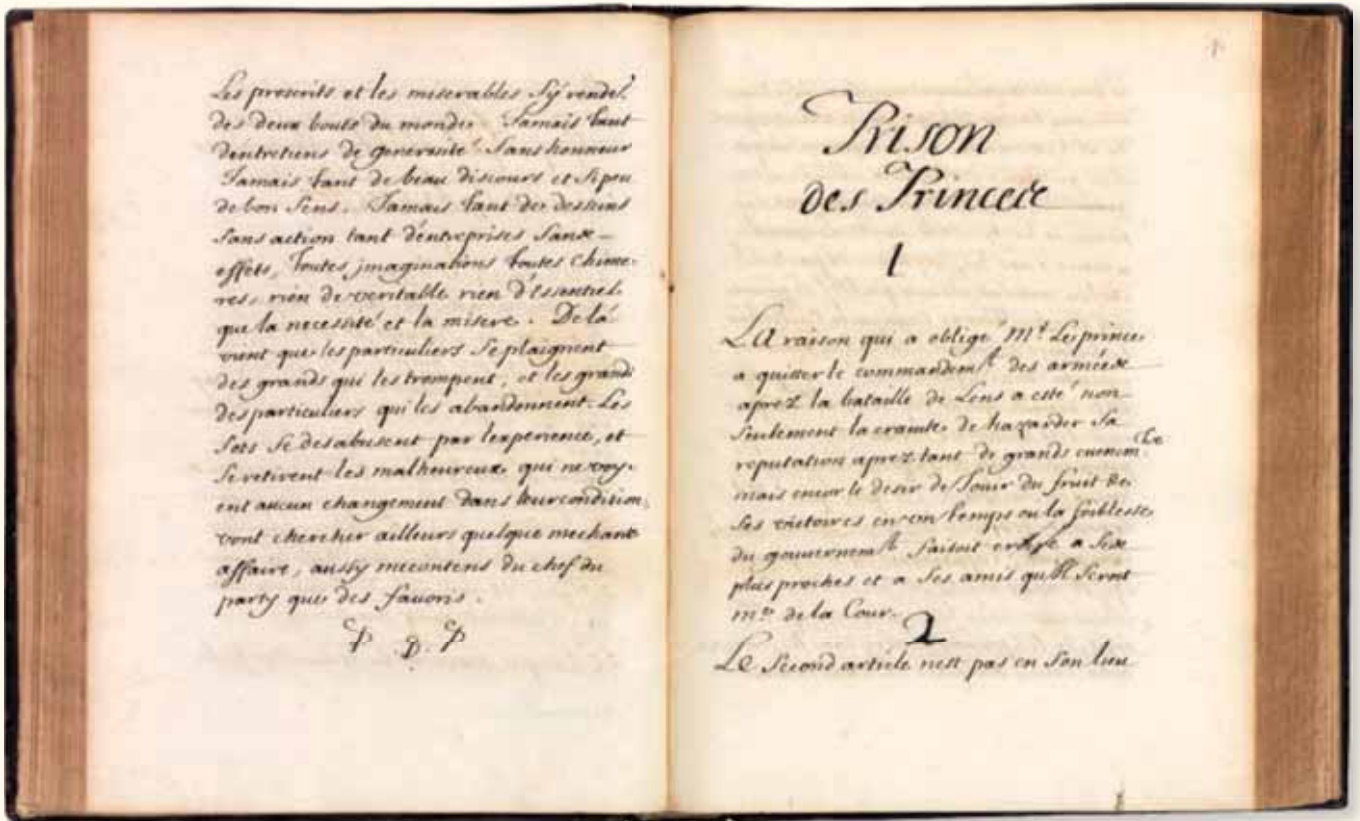 Les proscrits et les miserables s'y rendēt
des deux bouts du monde. Jamais tant
dentretiens de generosité sans honneur
Jamais tant de beau discours et si peu
de bon sens. Jamais tant de desseins
sans action tant d'entreprises sans
effets, toutes jmaginations toutes chime-
res, rien de veritable rien d'essentiel
que la necessité et la misere. De là
vient que les particuliers se plaignent
des grands qui les trompent, et les grands
des particuliers qui les abandonnent. Les
sots se desabusent par lexperience, et
se retirent les malheureux qui ne voy-
ent aucun changement dans leur condition,
vont chercher ailleurs quelque mechante
affaire, aussy mecontens du chef du
party que des favoris.
Prison
des Princes
1
La raison qui a obligé Mr. Le prince
a quitter le commandemt. des armées
aprez la bataille de Lens a esté non
seulement la crainte de hazarder sa
reputation aprez tant de grands evenem.ts
mais encor le desir de Jouir du fruit de
ses victoires en un temps ou la foiblesse
du gouvernemt. faisoit a ses
plus proches et a ses amis qu'il seront
mes. de la Cour.
2
Le second article nest pas en son lieu